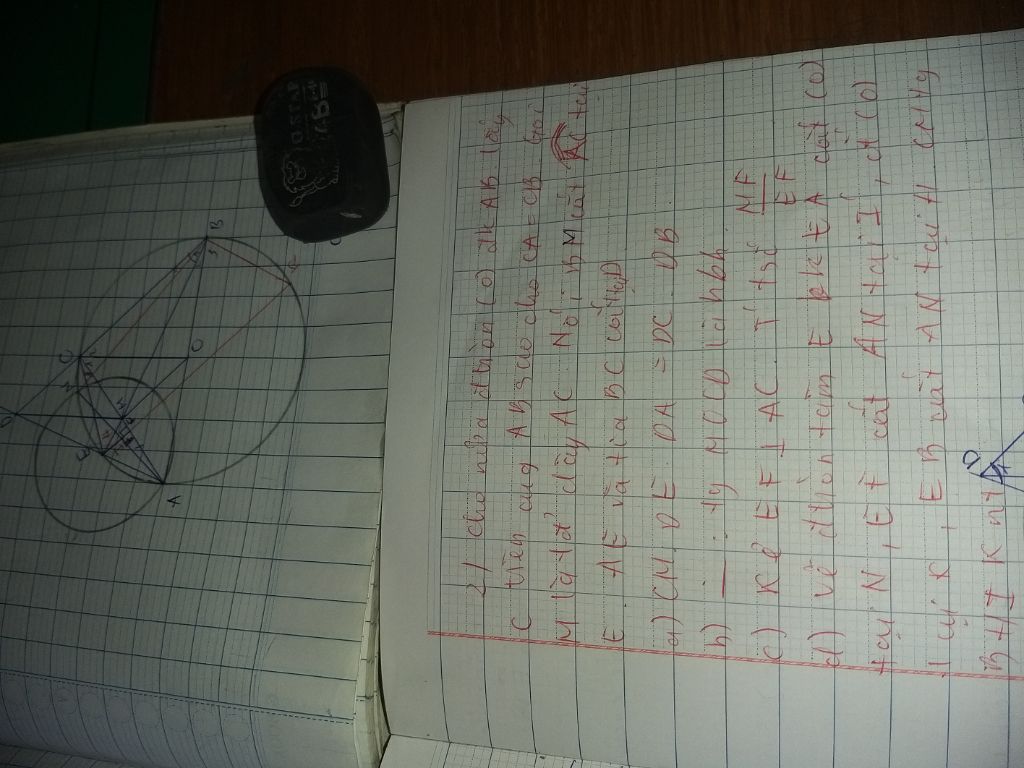 2/ cho nửa đtròn (O) đk AB lấy
C trên cung AB sao cho CA = CB gọi
M là tđ dây AC Nối BM cắt tại
E AE và tia BC cắt tại D
a) CM. DE DA = DC. DB
b) tg MOCD là hbh
c) Kẻ EF ⊥ AC Tỉ số MF/EF
d) Vẽ đtròn tâm E bk EA cắt (O)
tại N, EF cắt AN tại I, cắt (O)
tại K, EB cắt AN tại H
B H I K nt
A
B
C
O
D